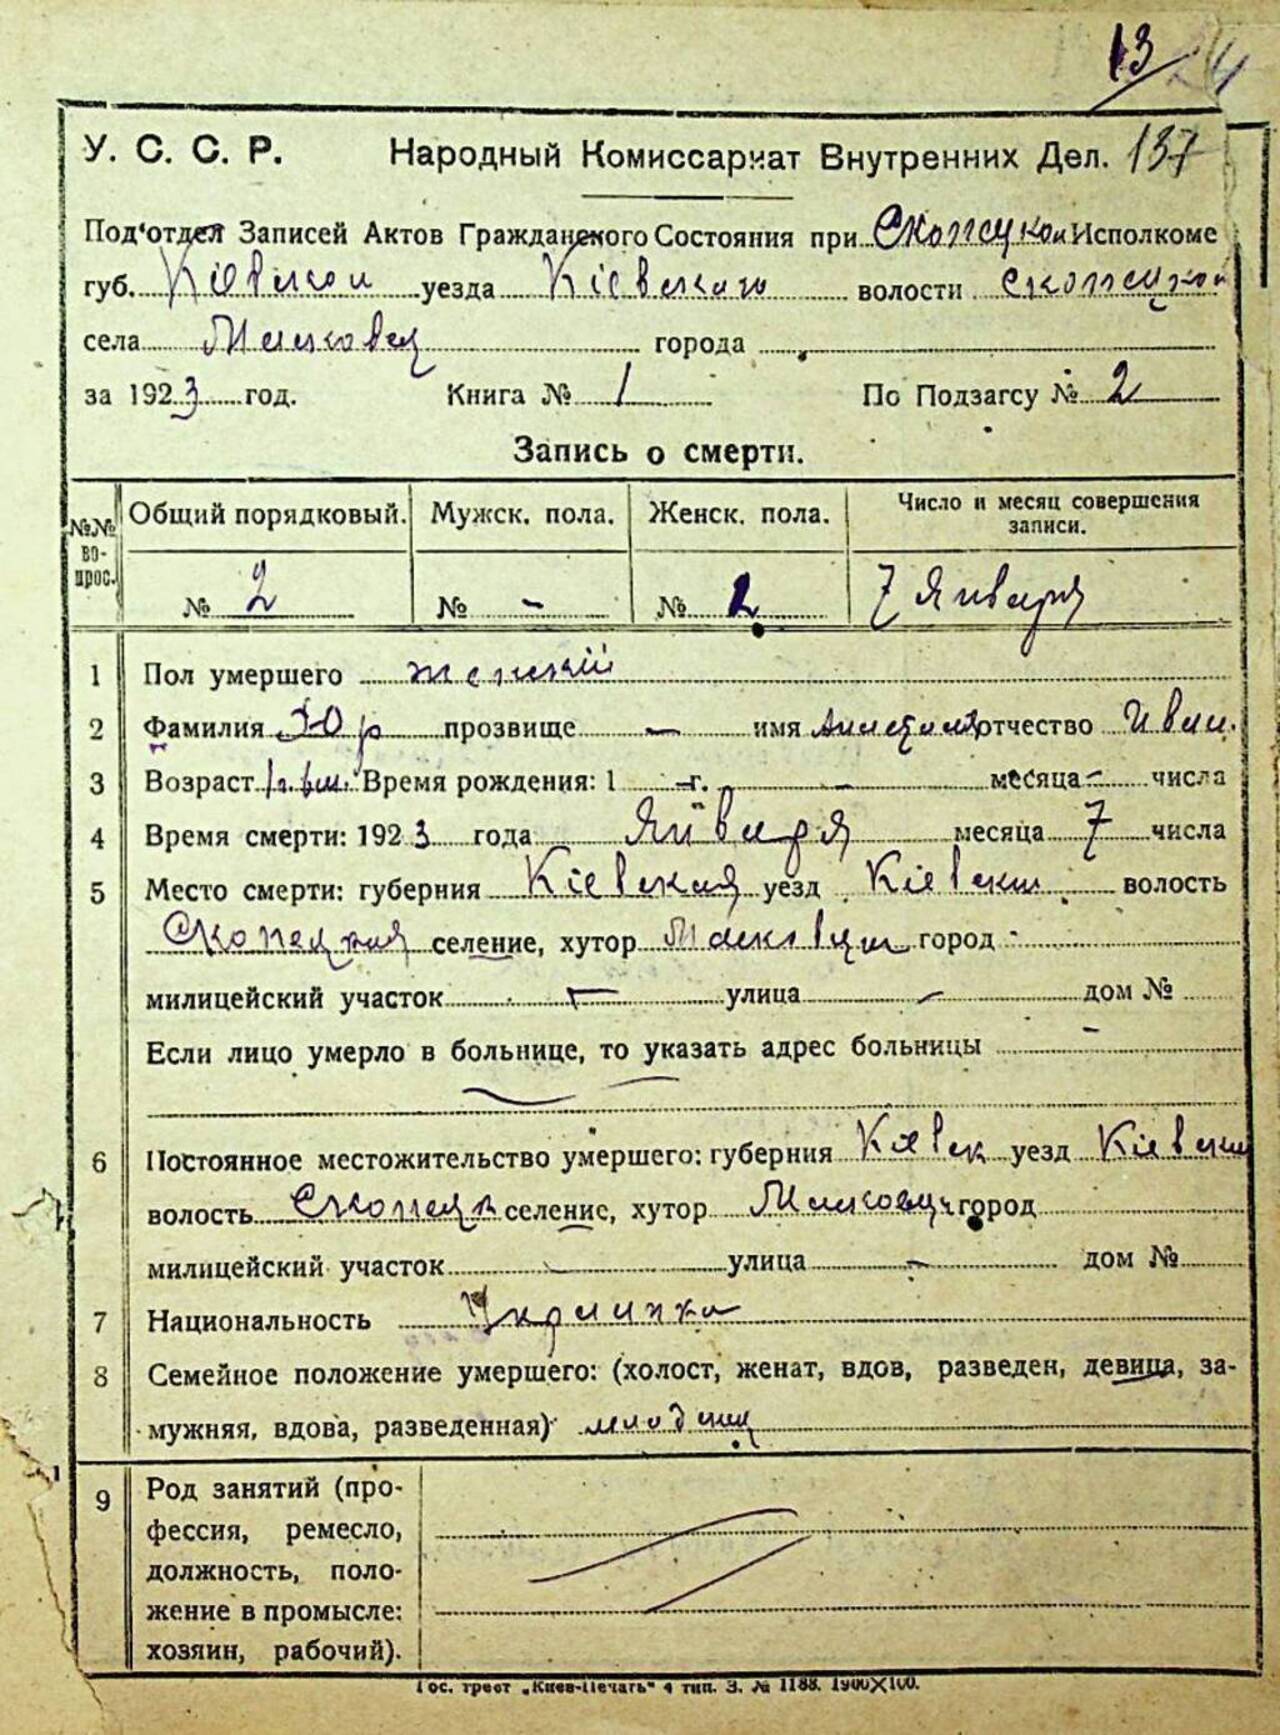 13
137
У. С. С. Р. Народный Комиссариат Внутренних Дел.
Под'отдел Записей Актов Гражданского Состояния при Скопецком Исполкоме
губ. Кіевской уезда Кіевскаго волости Скопецкой
села города
за 1923 год. Книга № 1 По Подзагсу № 2
Запись о смерти.
№№ во- прос. Общий порядковый. Мужск. пола. Женск. пола. Число и месяц совершения записи.
№ 2 № - № 2 7 Января
1 Пол умершего женскій
2 Фамилия прозвище — имя отчество Иван.
3 Возраст Время рождения: 1 — г. - месяца - числа
4 Время смерти: 1923 года Января месяца 7 числа
5 Место смерти: губерния Кіевская уезд Кіевский волость
Скопецкая селение, хутор город -
милицейский участок — улица - дом №
Если лицо умерло в больнице, то указать адрес больницы -
6 Постоянное местожительство умершего: губерния Кіевск уезд Кіевский
волость Скопецк селение, хутор город
милицейский участок - улица - дом №
7 Национальность Украинка
8 Семейное положение умершего: (холост, женат, вдов, разведен, девица, за-
мужняя, вдова, разведенная) младенец
9 Род занятий (про-
фессия, ремесло,
должность, поло-
жение в промысле:
хозяин, рабочий).
Гос. трест „Киев-Печать" 4 тип. З. № 1188. 1900×100.